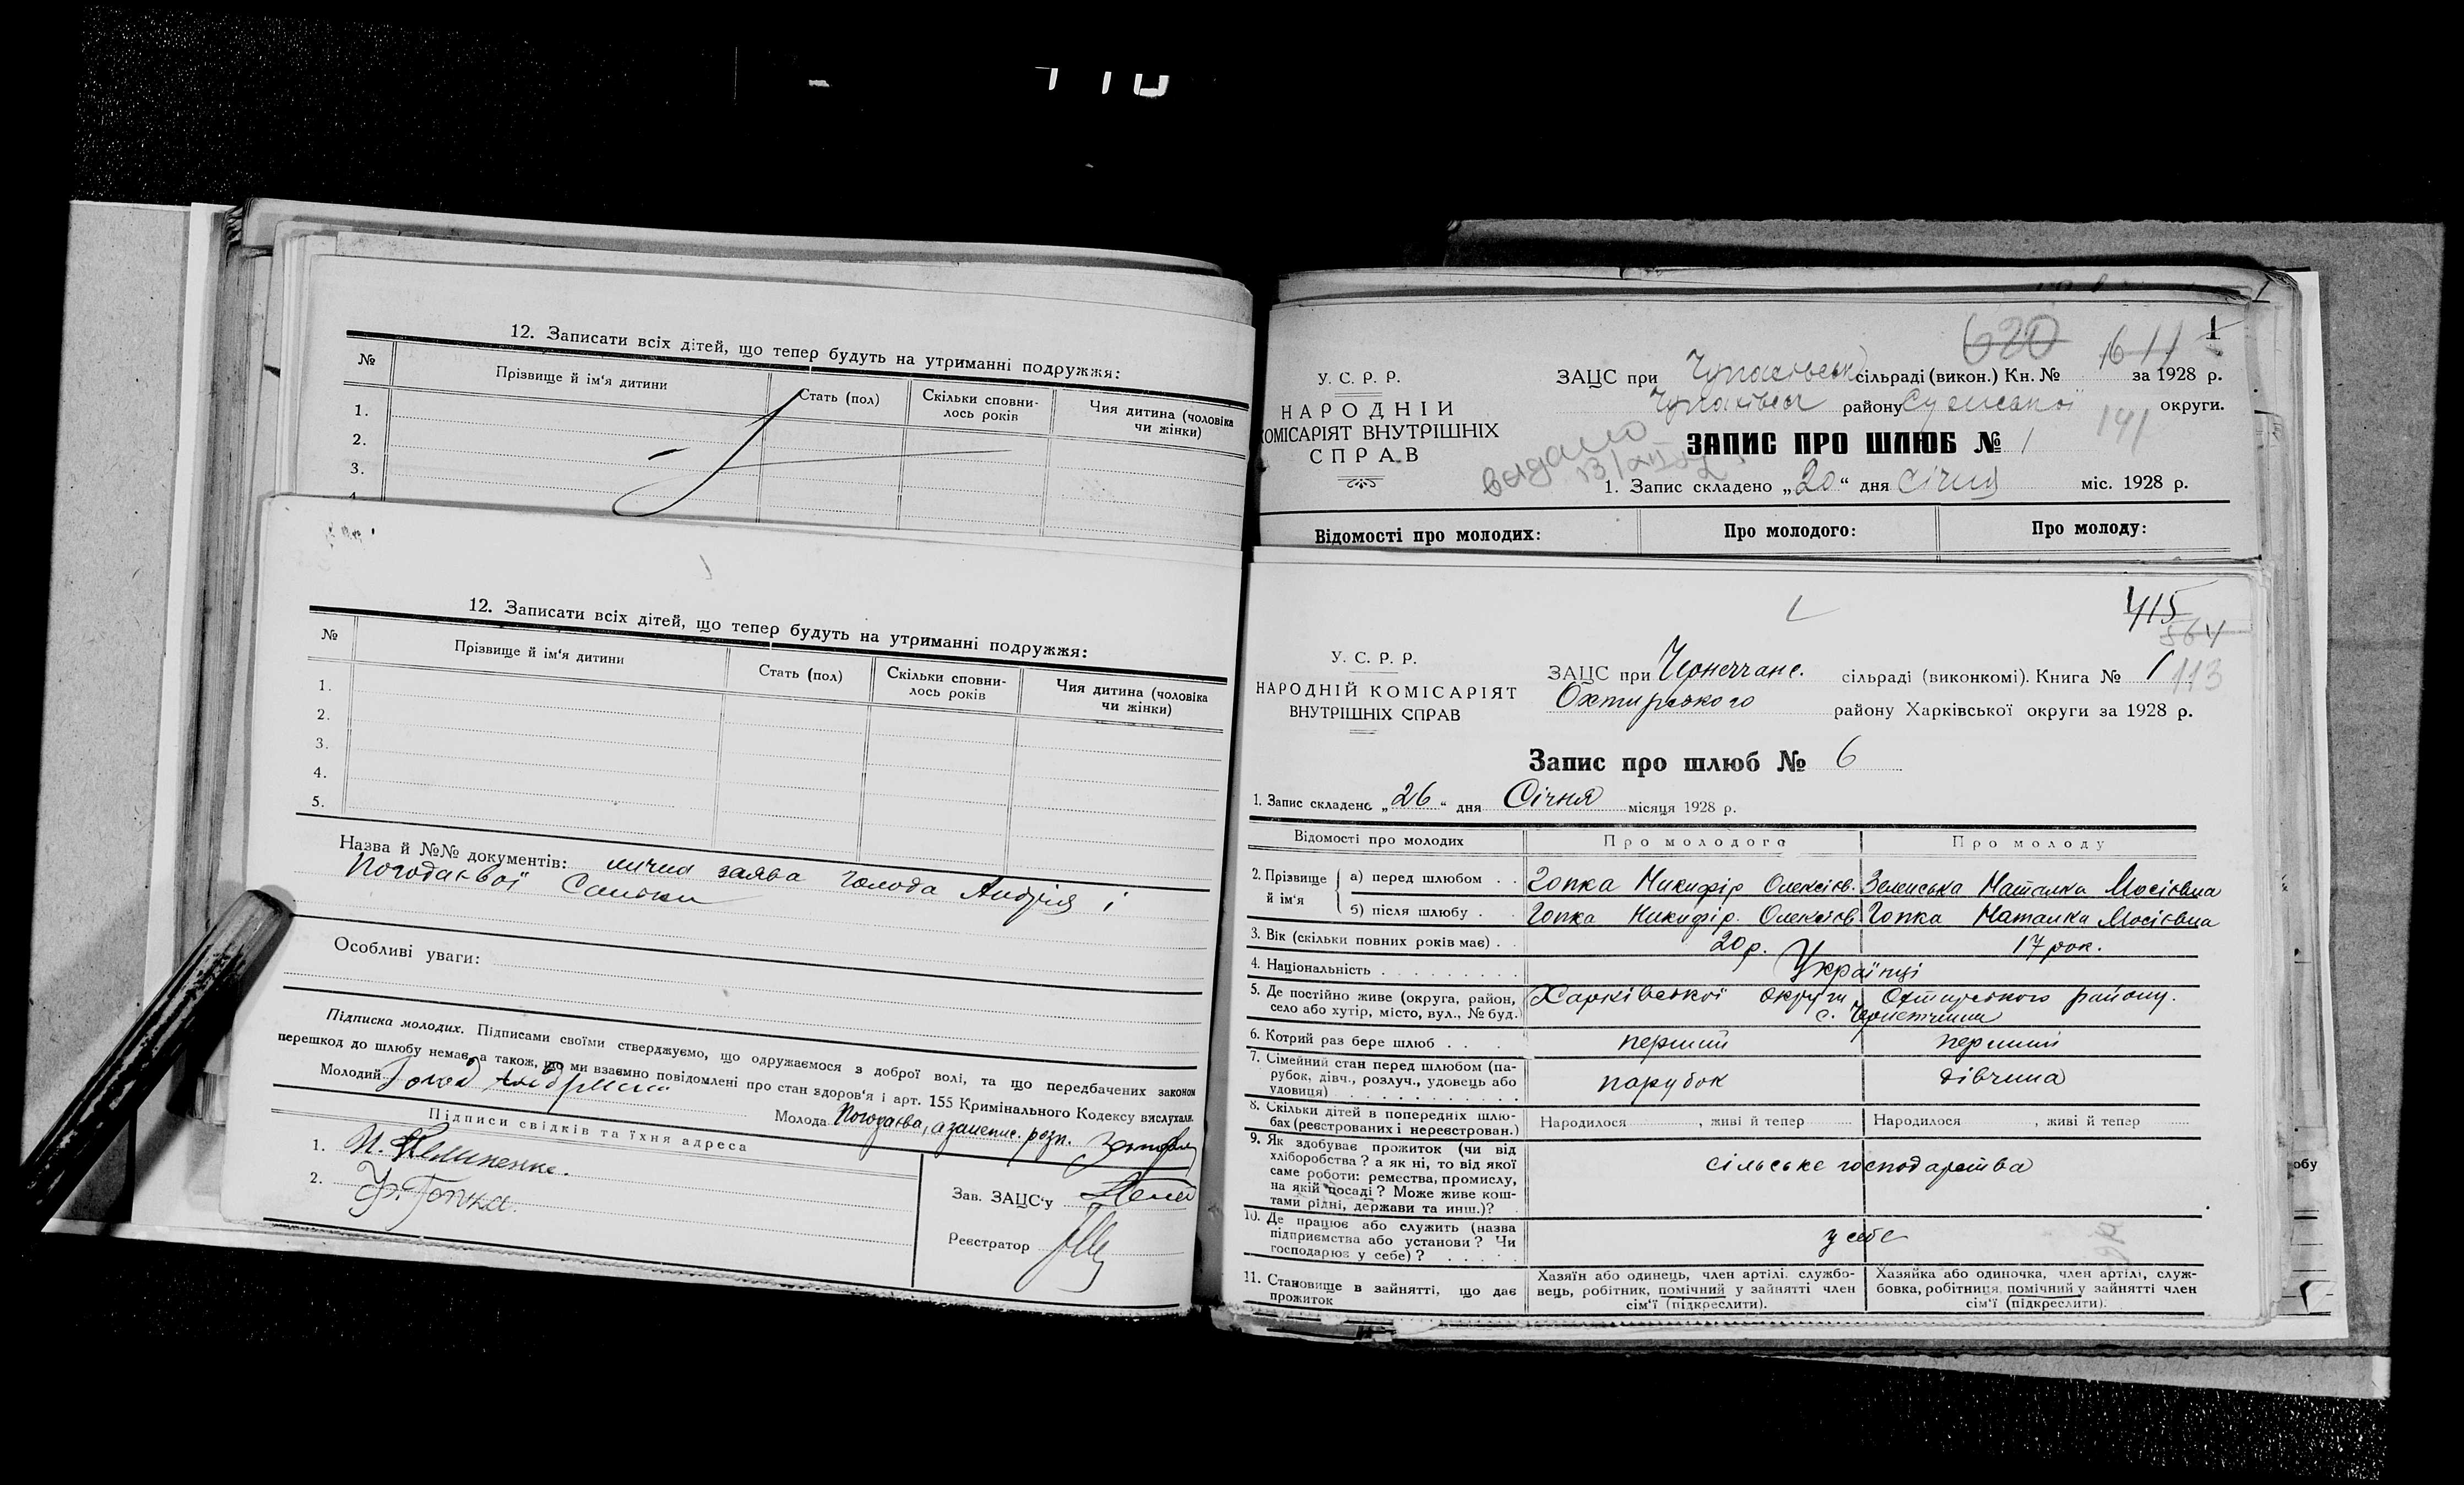 12. Записати всіх дітей, що тепер будуть на утриманні подружжя:
№ Прізвище й ім'я дитини Стать (пол) Скільки сповни-
лось років Чия дитина (чоловіка
чи жінки)
1.
2.
3.
12. Записати всіх дітей, що тепер будуть на утриманні подружжя:
№ Прізвище й ім'я дитини Стать (пол) Скільки сповни-
лось років Чия дитина (чоловіка
чи жінки)
1.
2.
3.
4.
5.
Назва й №№ документів: лична заява Голода Андрія і
Погодаєвої Саньки
Особливі уваги:
Підписка молодих. Підписами своїми стверджуємо, що одружаємося з доброї волі, та що передбачених законом
перешкод до шлюбу немає, а також, що ми взаємно повідомлені про стан здоров'я і арт. 155 Кримінального Кодексу вислухали.
Молодий Голод
Молода Погодаєва, а за неписм. розп.
Підписи свідків та їхня адреса
1.
2. Гопка.
Зав. ЗАЦС'у
Реєстратор
620 1611 1
У. С. Р. Р.
НАРОДНІЙ
КОМІСАРІЯТ ВНУТРІШНІХ
СПРАВ
ЗАЦС при Чупахівськ. сільраді (викон.) Кн. № за 1928 р.
Чупахівськ району Сумської округи.
141
видано
ЗАПИС ПРО ШЛЮБ № 1
1. Запис складено „20“ дня січня міс. 1928 р.
Відомості про молодих: Про молодого: Про молоду:
415
564
113
У. С. Р. Р.
НАРОДНІЙ КОМІСАРІЯТ
ВНУТРІШНІХ СПРАВ
ЗАЦС при Чернеччанс. сільраді (виконкомі). Книга № 1
Охтирського району Харківської округи за 1928 р.
Запис про шлюб № 6
1. Запис складено „26“ дня Січня місяця 1928 р.
Відомості про молодих Про молодого Про молоду
2. Прізвище й ім'я а) перед шлюбом Гопка Никифір Олексієв. Зеленська Наталка Мосієвна
б) після шлюбу Гопка Никифір Олексієв Гопка Наталка Мосієвна
3. Вік (скільки повних років має) 20 р. 17 рок.
4. Національність Українці
5. Де постійно живе (округа, район,
село або хутір, місто, вул., № буд.) Харківської округи Охтирського району.
с. Чернеччина
6. Котрий раз бере шлюб перший перший
7. Сімейний стан перед шлюбом (па-
рубок, дівч., розлуч., удовець або
удовиця) парубок дівчина
8. Скільки дітей в попередніх шлю-
бах (реєстрованих і нереєстрован.) Народилося , живі й тепер Народилося , живі й тепер
9. Як здобуває прожиток (чи від
хліборобства? а як ні, то від якої
саме роботи: ремества, промислу,
на якій посаді? Може живе кош-
тами рідні, держави та инш.)? сільське господарства
10. Де працює або служить (назва
підприємства або установи? Чи
господарює у себе)? у себе
11. Становище в зайнятті, що дає
прожиток
Хазяїн або одинець, член артілі, службо-
вець, робітник, помічний у зайнятті член
сім'ї (підкреслити).
Хазяйка або одиночка, член артілі, служ-
бовка, робітниця, помічний у зайнятті член
сім'ї (підкреслити).
обу